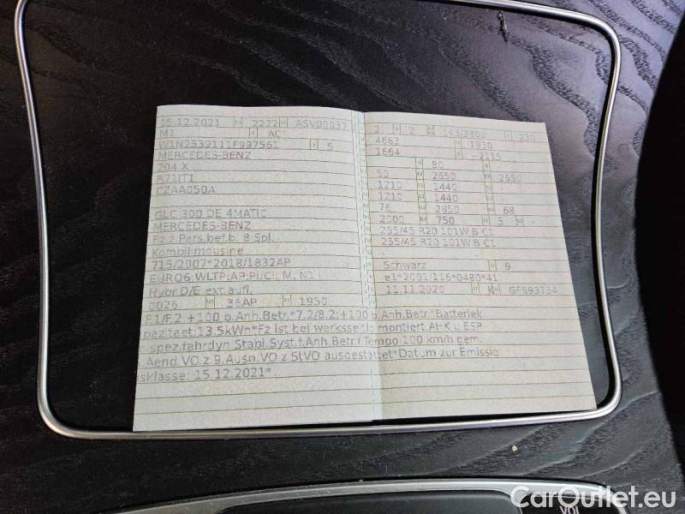 15.12.2021 2222
M1 AC
5
MERCEDES-BENZ
204 X
R7J1T1
CZAA050A
GLC 300 DE 4MATIC
MERCEDES-BENZ
Fz.z.Pers.bef.b. 8 Spl.
Kombilimousine
715/2007*2018/1832AP
EURO6;WLTP;AP;PI/CI; M, N1 I
Hybr.D/E ext.aufl.
0026 36AP 1950
2 2
4663 1930
1664 -2115
80
2650 2650
1210 1440
1210 1440
76 2950 68
2000 750 5
255/45 R20 101W B C1
255/45 R20 101W B C1
Schwarz 9
e1*2001/116*0480*41
11.11.2020 K
F.1/F.2 +100 b.Anh.Betr.*7.2/8.2:+100 b.Anh.Betr.*Batteriek
apazitaet:13,5kWh*Fz ist bei werksseit. montiert.AHK u.ESP
spez.fahrdyn.Stabi.Syst.f.Anh.Betr.f.Tempo 100 km/h gem.
Aend.VO z 9.Ausn.VO z StVO ausgestattet*Datum zur Emissio
sklasse: 15.12.2021*
CarOutlet.eu